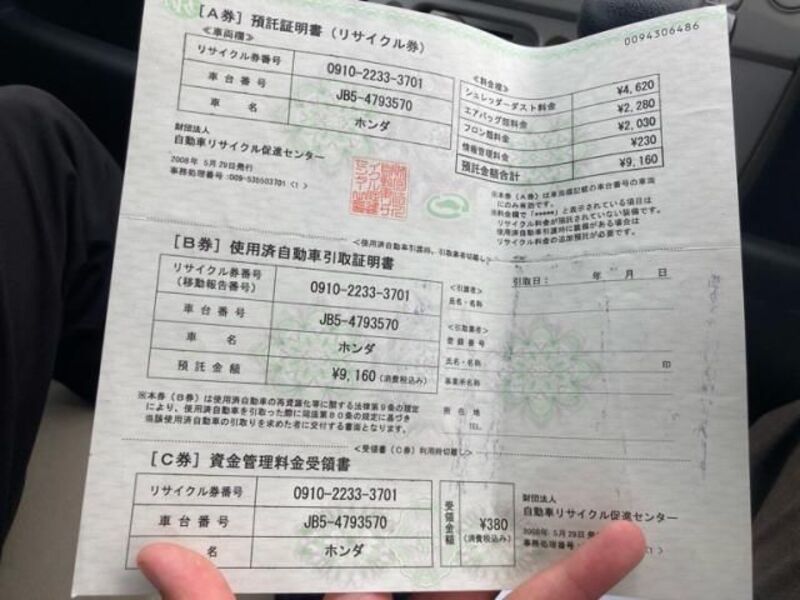 [A券] 預託証明書 (リサイクル券)
0094306486
≪車両欄≫
リサイクル券番号 0910-2233-3701
車台番号 JB5-4793570
車名 ホンダ
≪料金欄≫
シュレッダーダスト料金 ¥4,620
エアバッグ類料金 ¥2,280
フロン類料金 ¥2,030
情報管理料金 ¥230
預託金額合計 ¥9,160
財団法人
自動車リサイクル促進センター
2008年 5月29日発行
事務処理番号:009-535503701 <1>
※本券(A券)は車両欄記載の車台番号の車両
にのみ有効です。
※料金欄で「*****」と表示されている項目は
リサイクル料金が預託されていない装備です。
使用済自動車引渡時に装備がある場合は
リサイクル料金の追加預託が必要です。
<使用済自動車引渡時、引取業者切離し>
[B券] 使用済自動車引取証明書
リサイクル券番号
(移動報告番号) 0910-2233-3701
車台番号 JB5-4793570
車名 ホンダ
預託金額 ¥9,160 (消費税込み)
引取日: 年 月 日
<引渡者>
氏名・名称
<引取業者>
登録番号
氏名・名称 印
事業所名称
所在地
TEL.
※本券(B券)は使用済自動車の再資源化等に関する法律第9条の規定
により、使用済自動車を引取った際に同法第80条の規定に基づき
当該使用済自動車の引取りを求めた者に交付する書面となります。
<受領書(C券)利用時切離し>
[C券] 資金管理料金受領書
リサイクル券番号 0910-2233-3701
車台番号 JB5-4793570
名 ホンダ
受領金額 ¥380
(消費税込み)
財団法人
自動車リサイクル促進センター
2008年 5月29日発
事務処理番号:
<1>